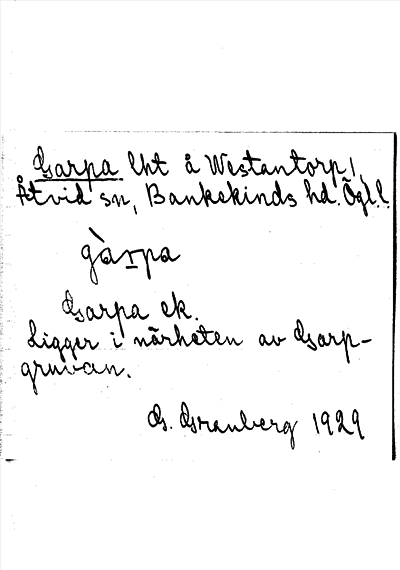 Garpa lht å Westantorp,
Åtvid sn, Bankekinds hd. Ögl.l.
gàrpa
Garpa ek.
Ligger i närheten av Garp-
gruvan.
G. Granberg 1929